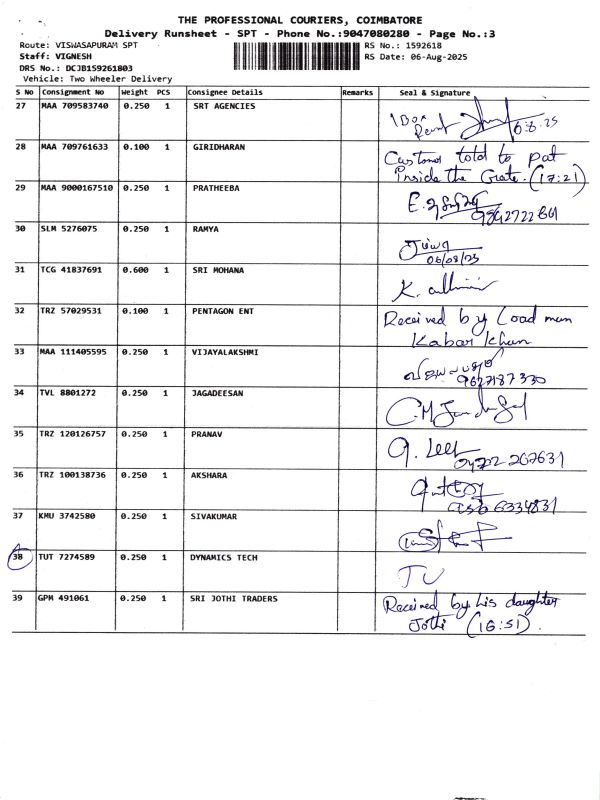 THE PROFESSIONAL COURIERS, COIMBATORE
Delivery Runsheet - SPT - Phone No.:9047080280 - Page No.:3
Route: VISWASAPURAM SPT RS No.: 1592618
Staff: VIGNESH RS Date: 06-Aug-2025
DRS No.: DCJB159261803
Vehicle: Two Wheeler Delivery
S No Consignment No Weight PCS Consignee Details Remarks Seal & Signature
27 MAA 709583740 0.250 1 SRT AGENCIES 1 Box
6.8.25
28 MAA 709761633 0.100 1 GIRIDHARAN Customd told to pat
inside the Grate. (17:21)
29 MAA 9000167510 0.250 1 PRATHEEBA
30 SLM 5276075 0.250 1 RAMYA
06/08/25
31 TCG 41837691 0.600 1 SRI MOHANA K.
32 TRZ 57029531 0.100 1 PENTAGON ENT Received by Load man
Kabar Khan
33 MAA 111405595 0.250 1 VIJAYALAKSHMI
9627187330
34 TVL 8801272 0.250 1 JAGADEESAN
35 TRZ 120126757 0.250 1 PRANAV
36 TRZ 100138736 0.250 1 AKSHARA
37 KMU 3742580 0.250 1 SIVAKUMAR
38 TUT 7274589 0.250 1 DYNAMICS TECH
39 GPM 491061 0.250 1 SRI JOTHI TRADERS Received by his daughter
Jothi (16:51).